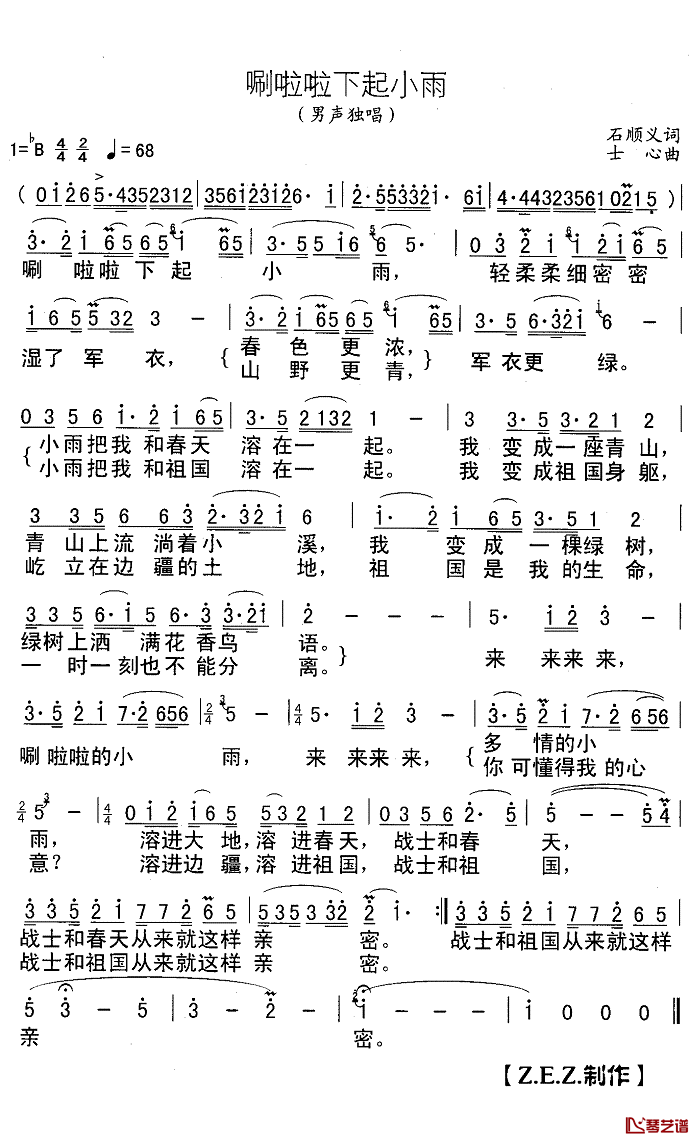 唰啦啦下起小雨
（男声独唱）
1=♭B 4/4 2/4 ♩=68
石顺义词
士心曲
唰 啦啦 下 起 小 雨， 轻柔柔细密密
湿了 军 衣，｛春 色 更 浓，｝军 衣更 绿。
山 野 更 青，
｛小雨把我 和春天 溶 在一 起。 我 变 成一座青山，
小雨把我 和祖国 溶 在一 起。 我 变 成祖国身躯，
青 山上流 淌着小 溪， 我 变 成 一 棵绿 树，
屹 立在边 疆的土 地， 祖 国 是 我 的生 命，
绿树上洒 满花 香鸟 语。｝ 来 来来 来，
一 时一刻也不 能分 离。
唰 啦啦的小 雨， 来 来来 来，｛多 情的小
你 可懂得我 的心
雨， 溶进大 地，溶 进春天， 战士和春 天，
意？ 溶进边 疆，溶 进祖国， 战士和祖 国，
战士和春天从来就这样 亲 密。 战士和祖国从来就这样
战士和祖国从来就这样 亲 密。
亲 密。
【Z.E.Z.制作】
琴艺谱